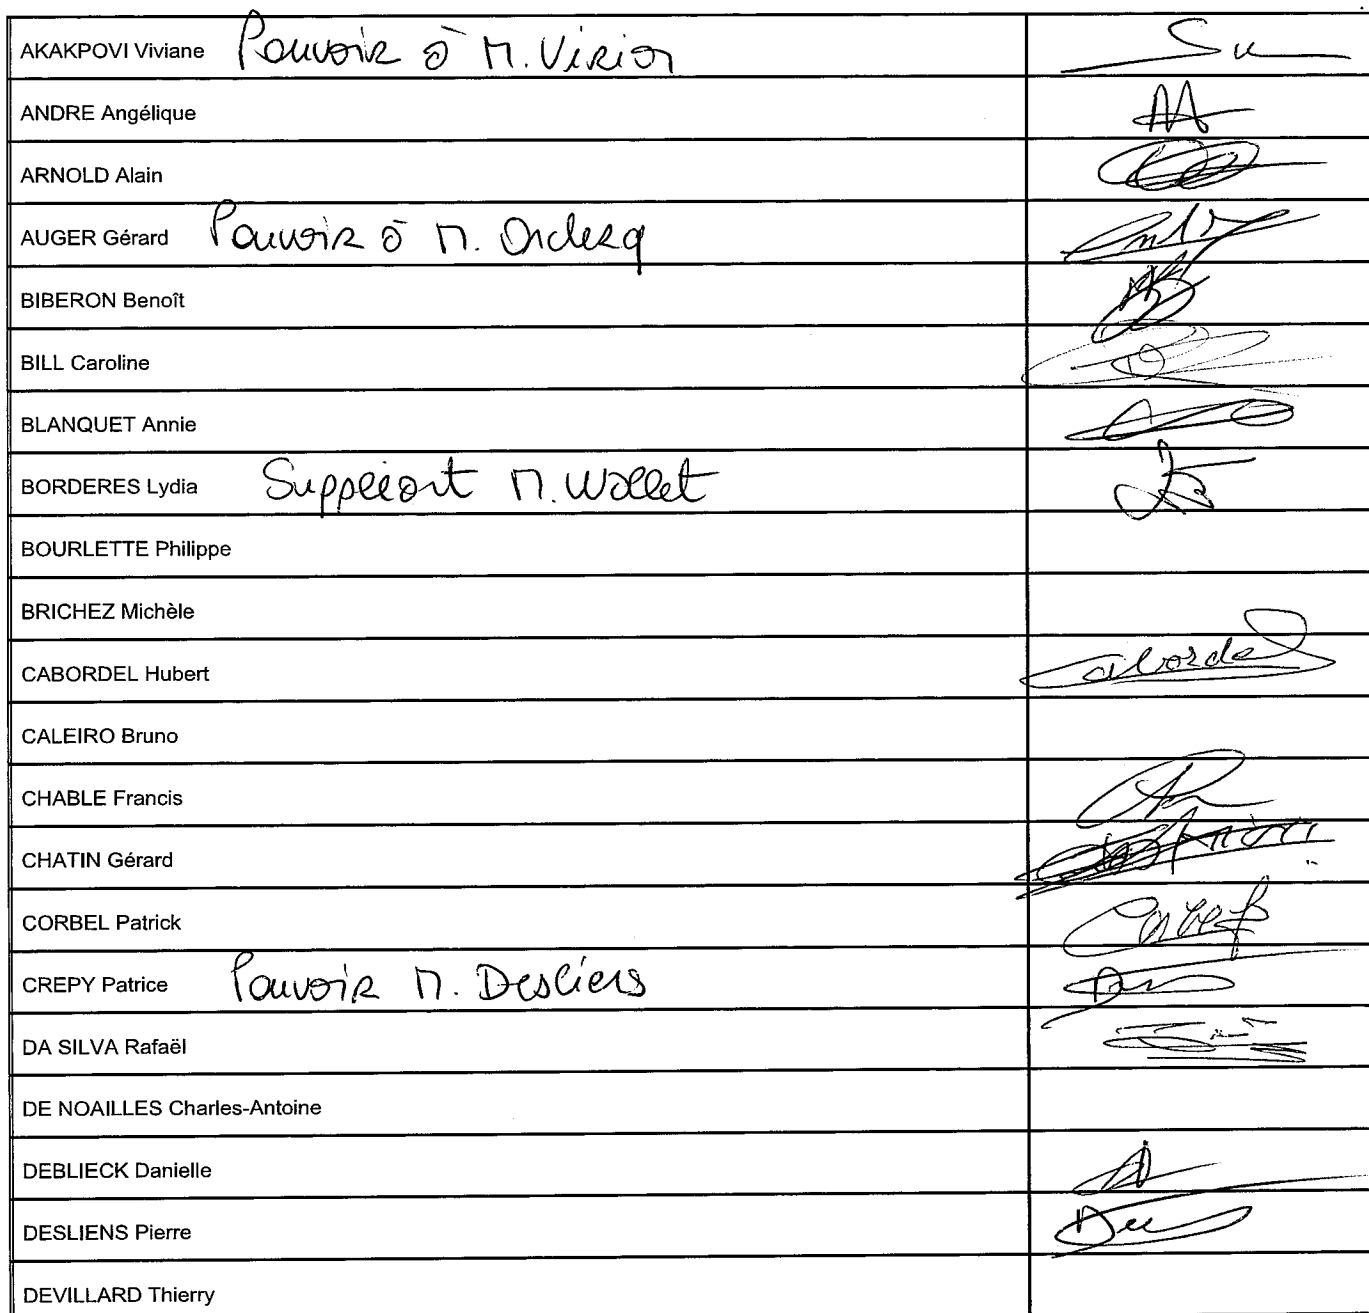 AKAKPOVI Viviane Pouvoir à M. Virion
ANDRE Angélique
ARNOLD Alain
AUGER Gérard Pouvoir à M.
BIBERON Benoît
BILL Caroline
BLANQUET Annie
BORDERES Lydia Suppléant M. Wollet
BOURLETTE Philippe
BRICHEZ Michèle
CABORDEL Hubert
CALEIRO Bruno
CHABLE Francis
CHATIN Gérard
CORBEL Patrick
CREPY Patrice Pouvoir M. Desliens
DA SILVA Rafaël
DE NOAILLES Charles-Antoine
DEBLIECK Danielle
DESLIENS Pierre
DEVILLARD Thierry